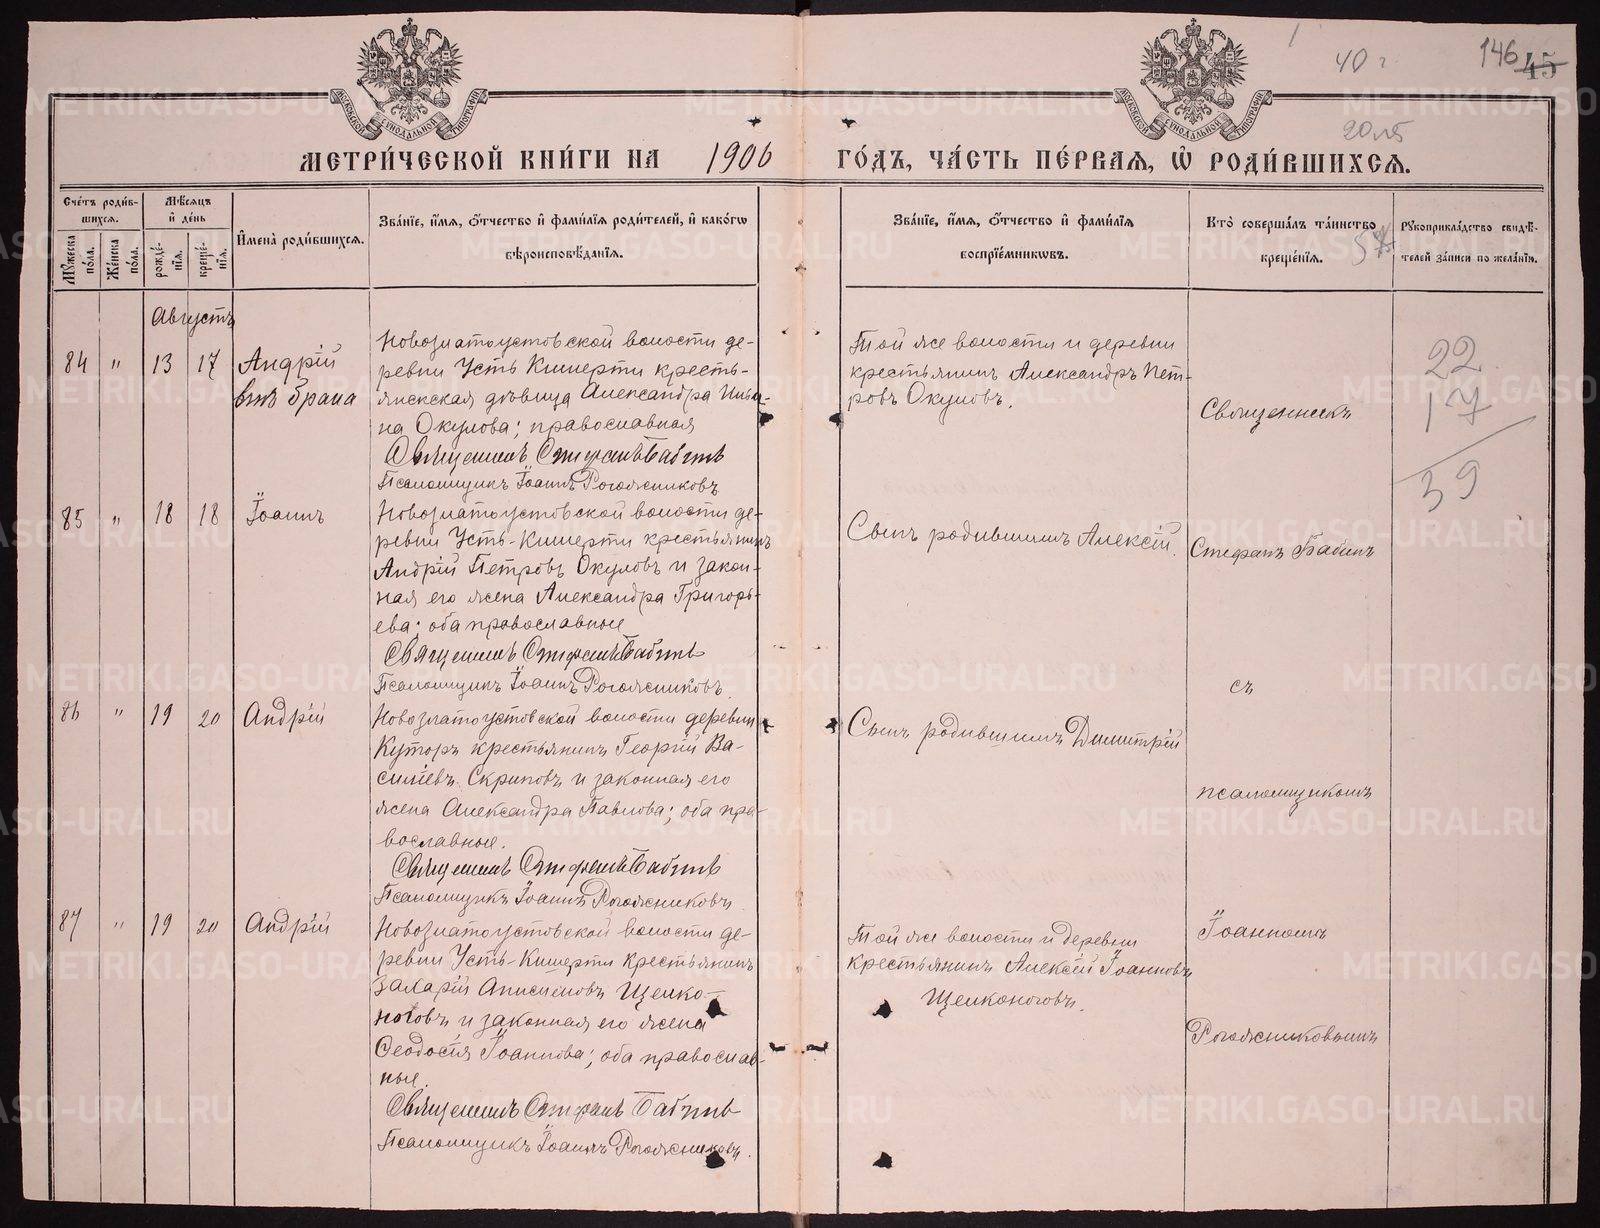 146 45
40 г
20 л б
МОСКОВСКОЙ СѴНОДАЛЬНОЙ ТИПОГРАФІИ
МОСКОВСКОЙ СѴНОДАЛЬНОЙ ТИПОГРАФІИ
МЕТРИ́ЧЕСКОЙ КНИ́ГИ НА 1906 ГО́ДЪ, ЧА́СТЬ ПЕ́РВАЯ, Ѿ РОДИ́ВШИХСЯ.
Сче́тъ роди́в-
шихся.
Мужеска по́ла.
Же́нска по́ла.
Мѣ́сяцъ
и де́нь
рожде́-
нїя.
креще́-
нїя.
Имена̀ роди́вшихся.
Зва́нїе, и́мя, о́тчество и фами́лїя роди́телей, и како́гѡ
вѣроисповѣ́данїя.
Зва́нїе, и́мя, о́тчество и фами́лїя
воспрїе́мникѡвъ.
Кто̀ соверша́лъ та́инство
креще́нїя.
Рукоприкла́дство свидѣ́-
телей за́писи по жела́нїю.
Августъ
84 " 13 17 Андрій
внѣ брака
Новозлатоустовской волости де-
ревни Усть Кишерти кресть-
янская дѣвица Александра Ильи-
на Окулова; православная
Священникъ Стефанъ Бабинъ
Псаломщикъ Іоаннъ Рогожниковъ
Той же волости и деревни
крестьянинъ Александръ Пет-
ровъ Окуловъ.
Священникъ
22
17
39
85 " 18 18 Іоаннъ
Новозлатоустовской волости де-
ревни Усть-Кишерти крестьянинъ
Андрій Петровъ Окуловъ и закон-
ная его жена Александра Григорь-
ева; оба православные
Священникъ Стефанъ Бабинъ
Псаломщикъ Іоаннъ Рогожниковъ.
Сынъ родившимъ Алексій.
Стефанъ Бабинъ
съ
86 " 19 20 Андрій
Новозлатоустовской волости деревни
Куторъ крестьянинъ Георгій Ва-
силіевъ Скриповъ и законная его
жена Александра Павлова; оба пра-
вославные.
Священникъ Стефанъ Бабинъ
Псаломщикъ Іоаннъ Рогожниковъ
Сынъ родившимъ Димитрій
псаломщикомъ
87 " 19 20 Андрій
Новозлатоустовской волости де-
ревни Усть-Кишерти крестьянинъ
Захарій Анисимовъ Щелко-
ноговъ и законная его жена
Ѳеодосія Іоаннова; оба православ-
ные.
Священникъ Стефанъ Бабинъ
Псаломщикъ Іоаннъ Рогожниковъ.
Той же волости и деревни
крестьянинъ Алексѣй Іоанновъ
Щелконоговъ.
Іоанномъ
Рогожниковымъ
METRIKI.GASO-URAL.RU